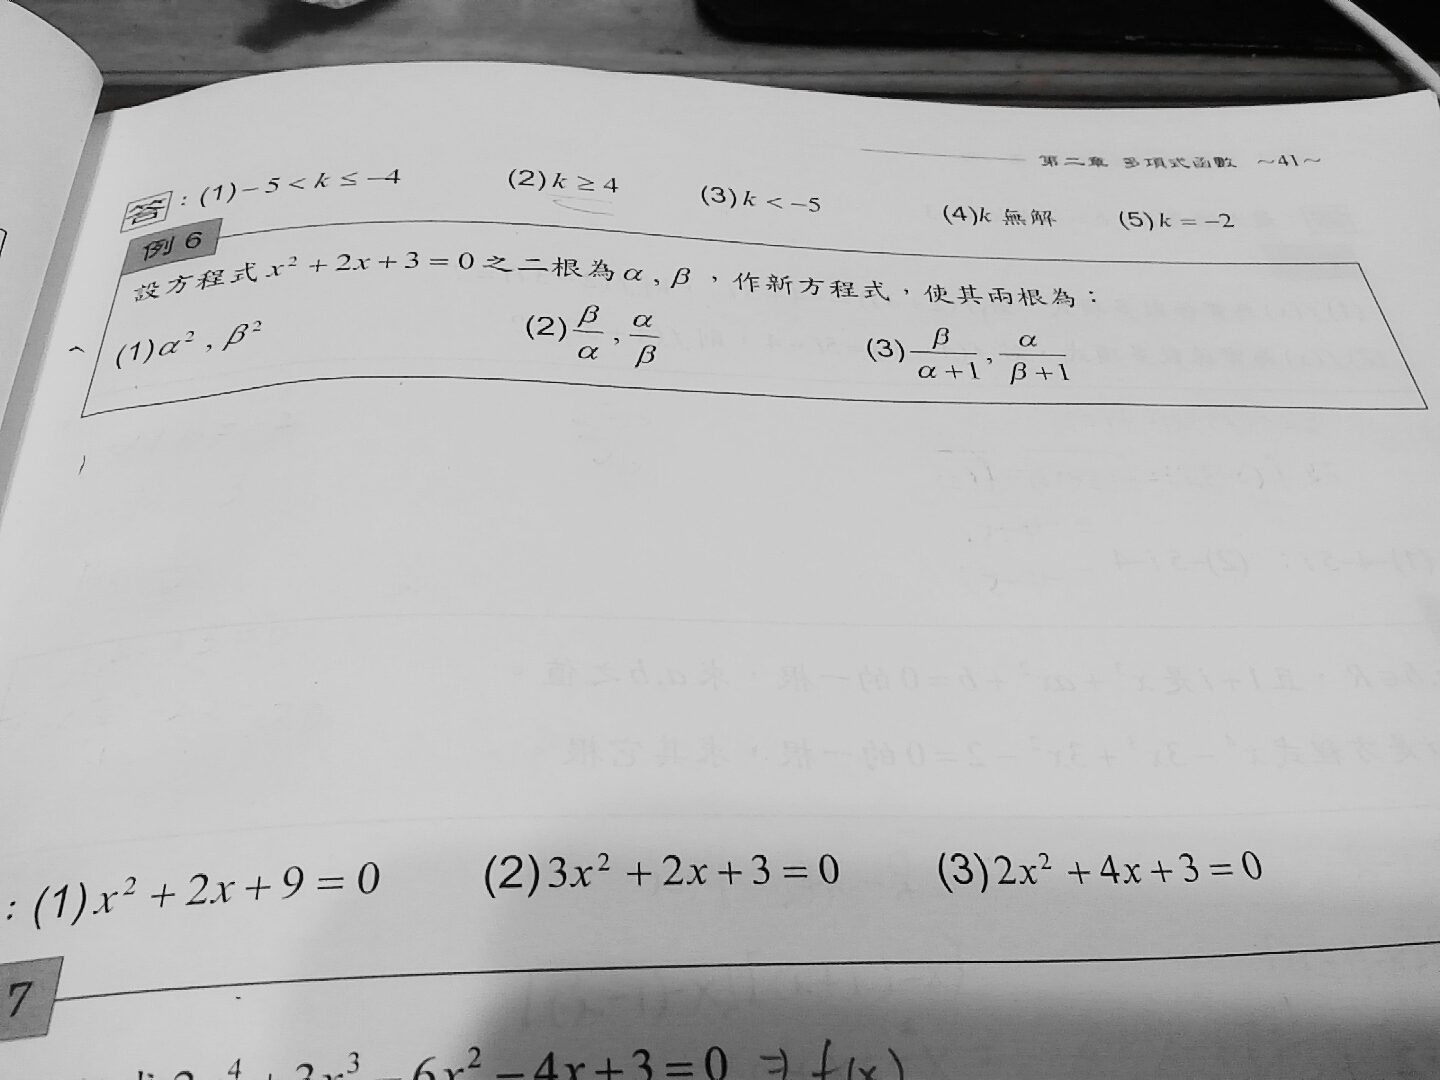 第二章 多項式函數 ~41~
答:(1)-5<k≤-4 (2)k≥4 (3)k<-5 (4)k 無解 (5)k=-2
例 6
設方程式 x²+2x+3=0 之二根為 α, β,作新方程式,使其兩根為:
(1)α², β² (2)β/α, α/β (3)β/(α+1), α/(β+1)
:(1)x²+2x+9=0 (2)3x²+2x+3=0 (3)2x²+4x+3=0
7
-6x²-4x+3=0 ⇒ f(x)